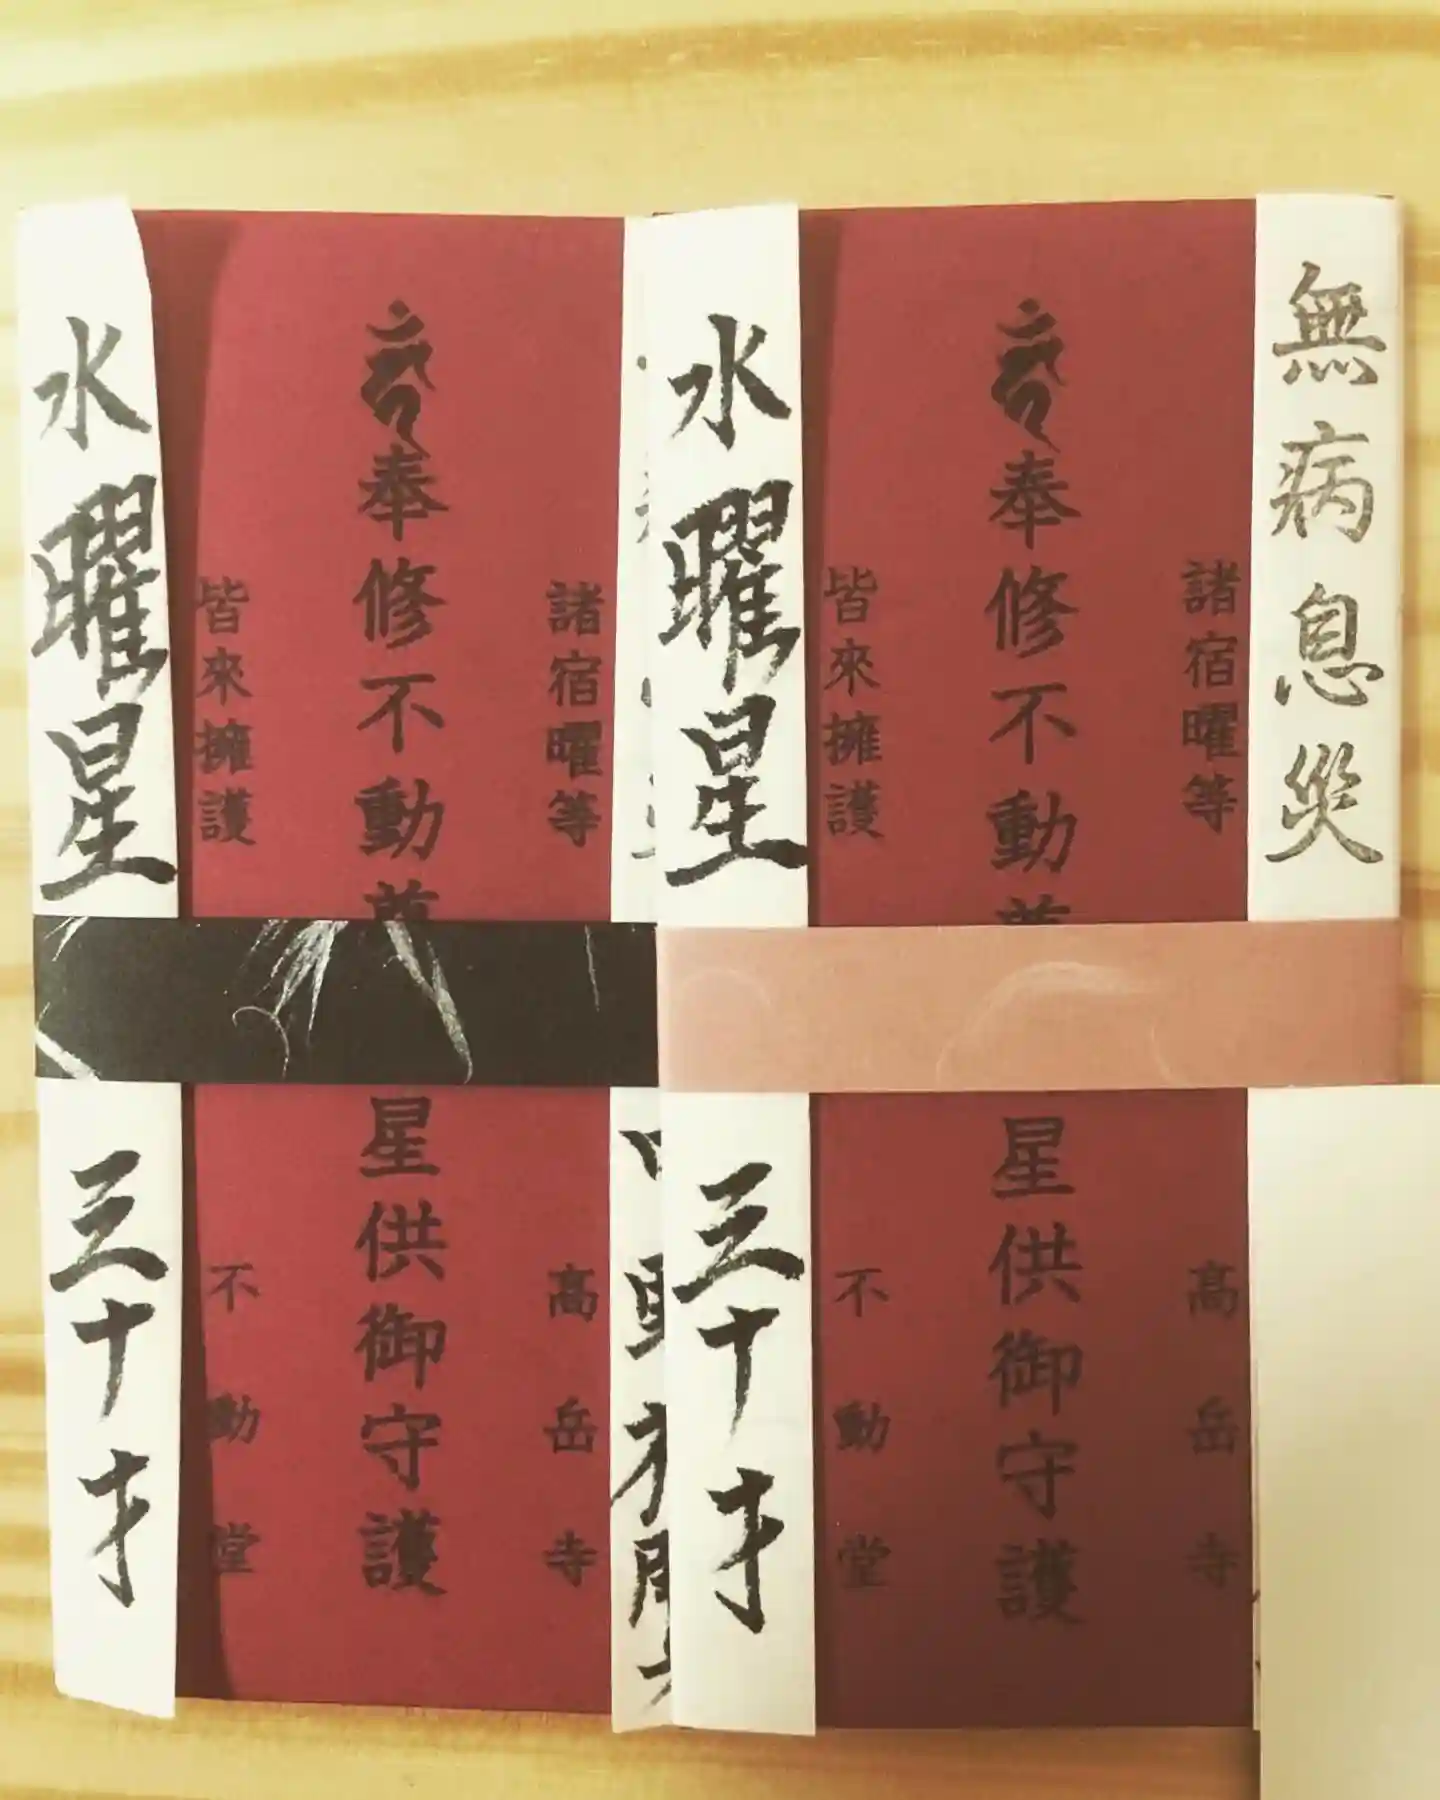 無病息災
諸宿曜等
高岳寺
奉修不動尊
星供御守護
皆來擁護
不動堂
水曜星
三十才
諸宿曜等
高岳寺
奉修不動尊
星供御守護
皆來擁護
不動堂
水曜星
三十才